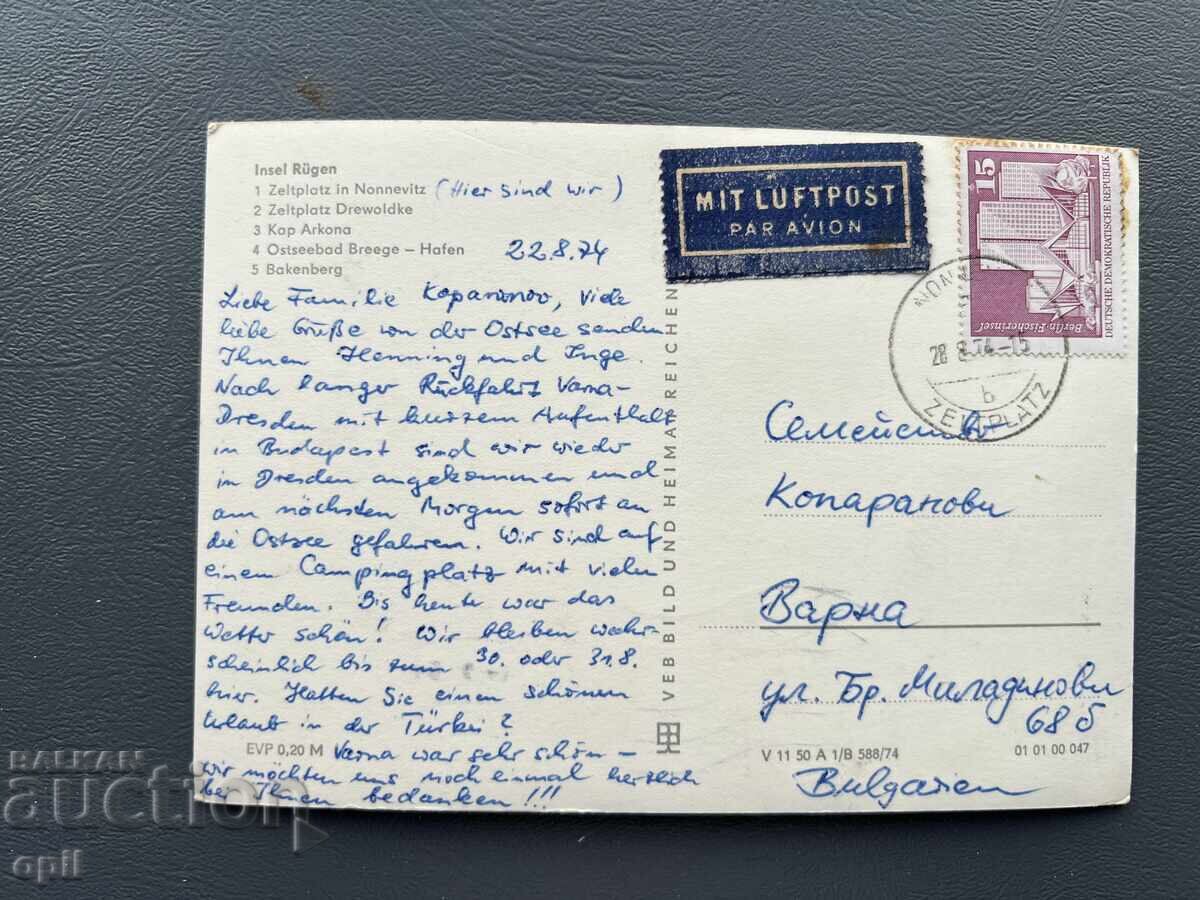 Insel Rügen
1 Zeltplatz in Nonnevitz (Hier sind wir)
2 Zeltplatz Drewoldke
3 Kap Arkona
4 Ostseebad Breege – Hafen
5 Bakenberg
22.8.74
Liebe Familie Koparanov, viele
liebe Grüße von der Ostsee senden
Ihnen Henning und Inge.
Nach langer Rückfahrt Varna-
Dresden mit kurzem Aufenthalt
in Budapest sind wir wieder
in Dresden angekommen und
am nächsten Morgen sofort an
die Ostsee gefahren. Wir sind auf
einem Campingplatz mit vielen
Freunden. Bis heute war das
Wetter schön! Wir bleiben wahr-
scheinlich bis zum 30. oder 31.8.
hier. Hatten Sie einen schönen
Urlaub in der Türkei?
Varna war sehr schön –
wir möchten uns noch einmal herzlich
bei Ihnen bedanken!!!
EVP 0,20 M
VEB BILD UND HEIMAT REICHEN
MIT LUFTPOST
PAR AVION
15
DEUTSCHE DEMOKRATISCHE REPUBLIK
Berlin-Fischerinsel
74-15
b
ZELTPLATZ
Семейство
Копаранови
Варна
ул. Бр. Миладинови
68 б
Bulgarien
V 11 50 A 1/B 588/74
01 01 00 047
BALKAN
auction
opil